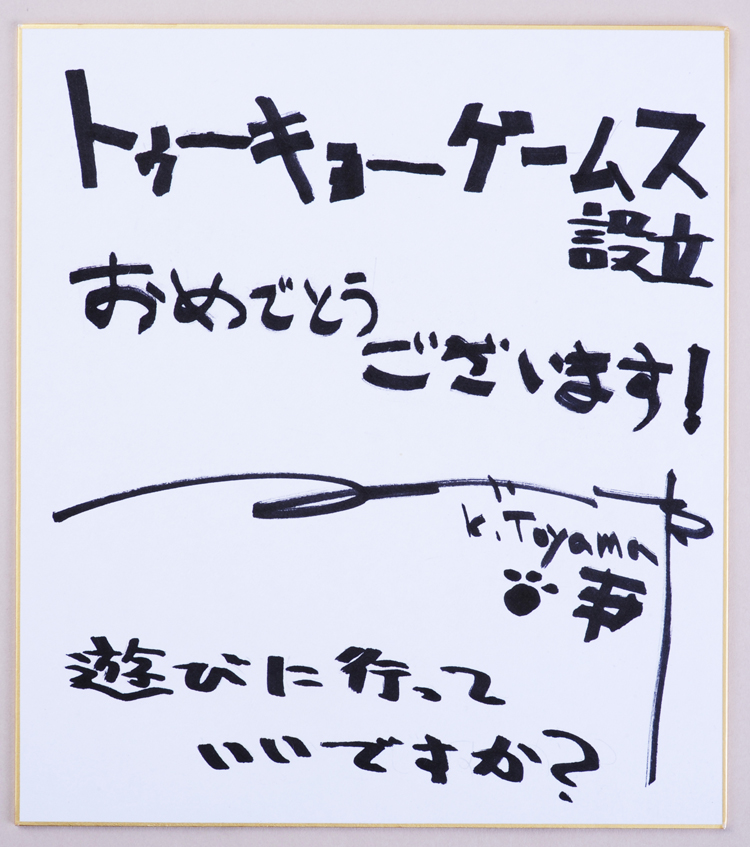 トゥーキョーゲームス
設立
おめでとう
ございます!
K.Toyama
遊びに行って
いいですか?